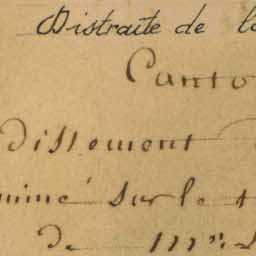 Distraite de la
Canto
dissement
miné sur le t
de